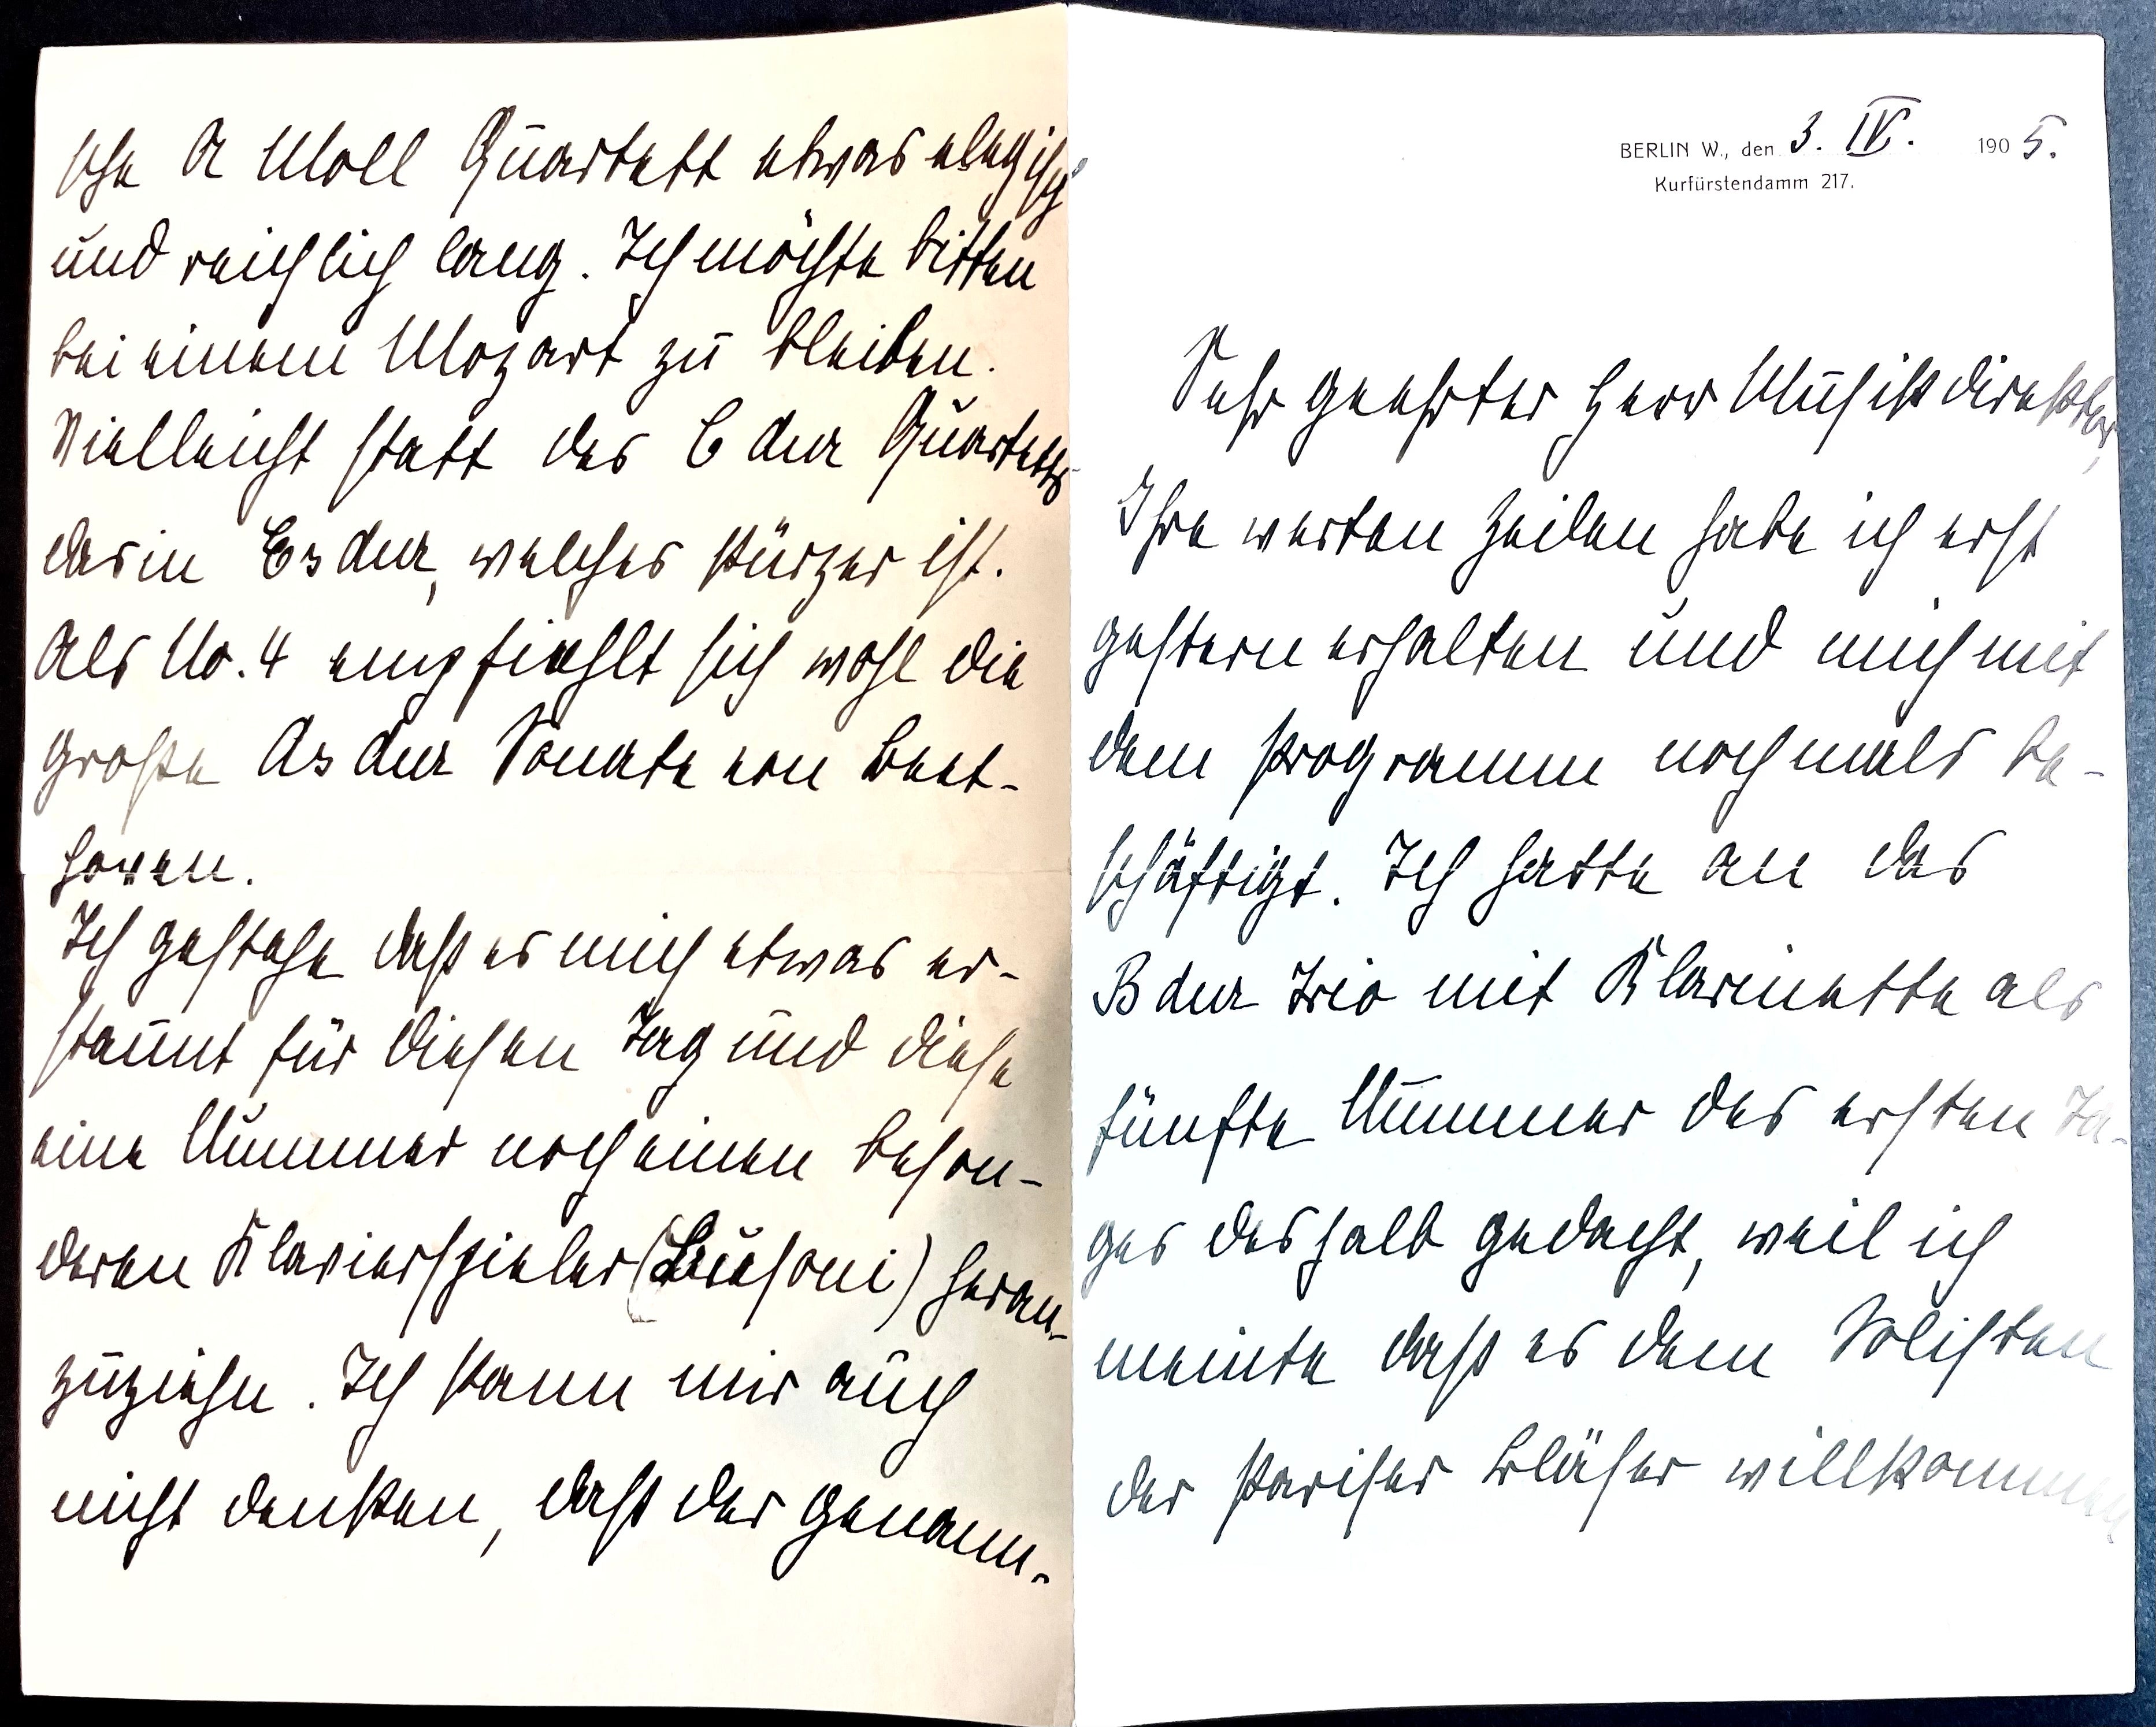 BERLIN W., den 3. IV. 1905.
Kurfürstendamm 217.
Sehr geehrter Herr Musikdirektor,
Ihre werten Zeilen habe ich erst
gestern erhalten und mich mit
dem Programm nochmals be-
schäftigt. Ich hatte an das
B dur Trio mit Klarinette als
fünfte Nummer des ersten Ta-
ges deshalb gedacht, weil ich
meinte daß es dem Solisten
der Pariser Bläser willkommen
sche A Moll Quartett etwas elegisch
und reichlich lang. Ich möchte bitten
bei einem Mozart zu bleiben.
Vielleicht statt des C dur Quartetts
das in Es dur, welches kürzer ist.
Als No. 4 empfiehlt sich wohl die
große As dur Sonate von Beet-
hoven.
Ich gestehe daß es mich etwas er-
staunt für diesen Tag und diese
eine Nummer noch einen beson-
deren Klavierspieler (Busoni) heran-
zuziehn. Ich kann mir auch
nicht denken, daß der genann-